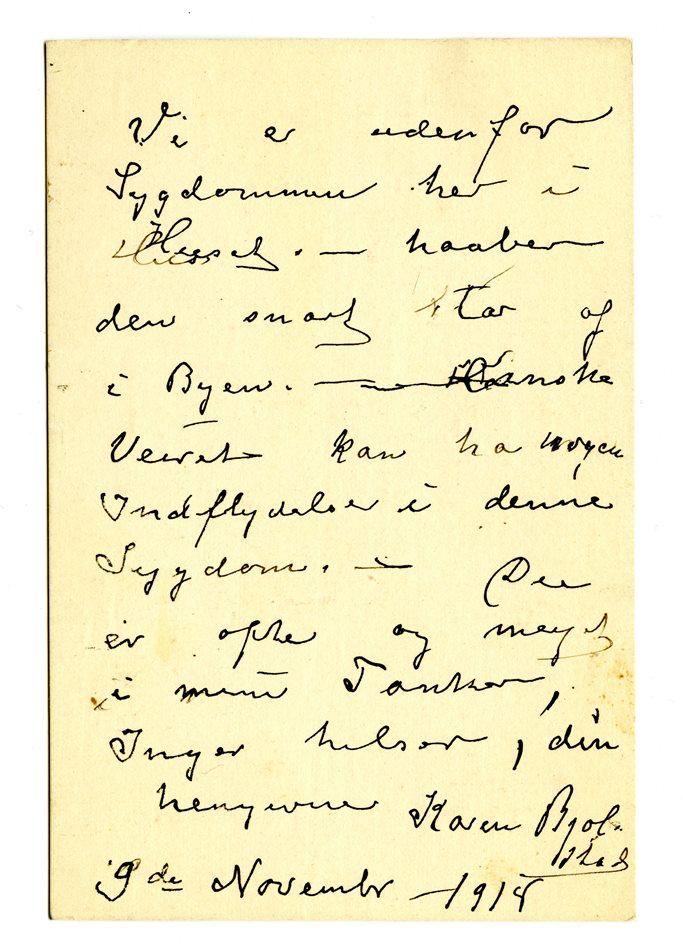 Vi er udenfor
Sygdommen her i
Huset. — haaber
den snart tar af
i Byen. — Kanske
Veiret kan ha nogen
Indflydelser i denne
Sygdom. — Du
er ofte og meget
i mine Tanker,
Inger hilser, din
hengivne Karen Bjøl-
stad
9de Novembr — 1918